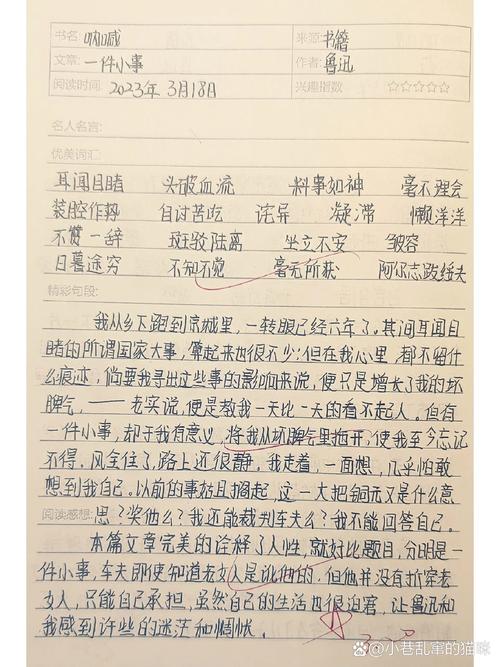 书名: 呐喊 来源: 书籍
文章: 一件小事 作者: 鲁迅
阅读时间: 2023年3月18日 兴趣指数 ☆☆☆☆☆
名人名言:
优美词汇:
耳闻目睹 头破血流 料事如神 毫不理会
装腔作势 自讨苦吃 诧异 凝滞 懒洋洋
不赞一辞 斑驳陆离 坐立不安 皱容
日暮途穷 不知不觉 毫无所获 阿尔志跋绥夫
精彩句段:
我从乡下跑到京城里,一转眼已经六年了。其间耳闻目
睹的所谓国家大事,算起来也很不少;但在我心里,都不留什
么痕迹,倘要我寻出这些事的影响来说,便只是增长了我的坏
脾气,——老实说,便是教我一天比一天的看不起人。但有
一件小事,却于我有意义,将我从坏脾气里拖开,使我至今忘记
不得。风全住了,路上还很静。我走着,一面想,几乎怕敢
想到我自己。以前的事姑且搁起,这一大把铜元又是什么意
思?奖他么?我还能裁判车夫么?我不能回答自己。
阅读感想:
本篇文章完美的诠释了人性,就好比题目,分明是一
件小事,车夫即使知道老女人是讹他的,但他并没有拆穿老
女人,只能自己承担,虽然自己的生活也很迫窘,让鲁迅和
我感到许些的迷茫和惆怅。
@小巷乱窜的猫咪